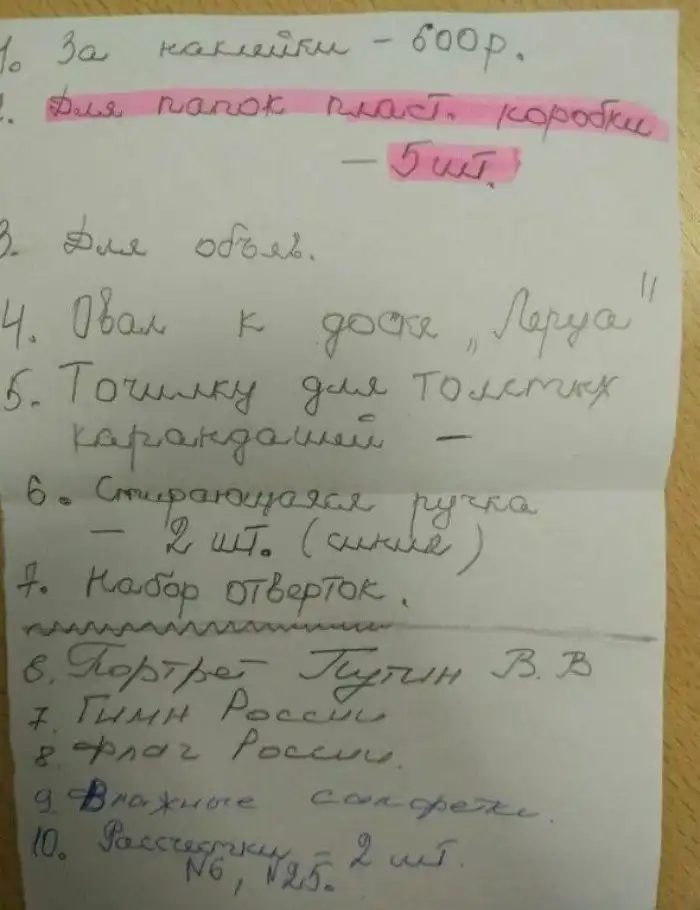 1. За наклейки - 600р.
2. Для папок пласт. коробки
- 5 шт.
3. Для объяв.
4. Овал к доске „Леруа"
5. Точилку для толстых
карандашей -
6. Стирающаяся ручка
- 2 шт. (синие)
7. Набор отверток.
6. Портрет Путин В.В
7. Гимн России
8. Флаг России.
9. Влажные салфетки.
10. Рассчестки - 2 шт.
№6, №25.